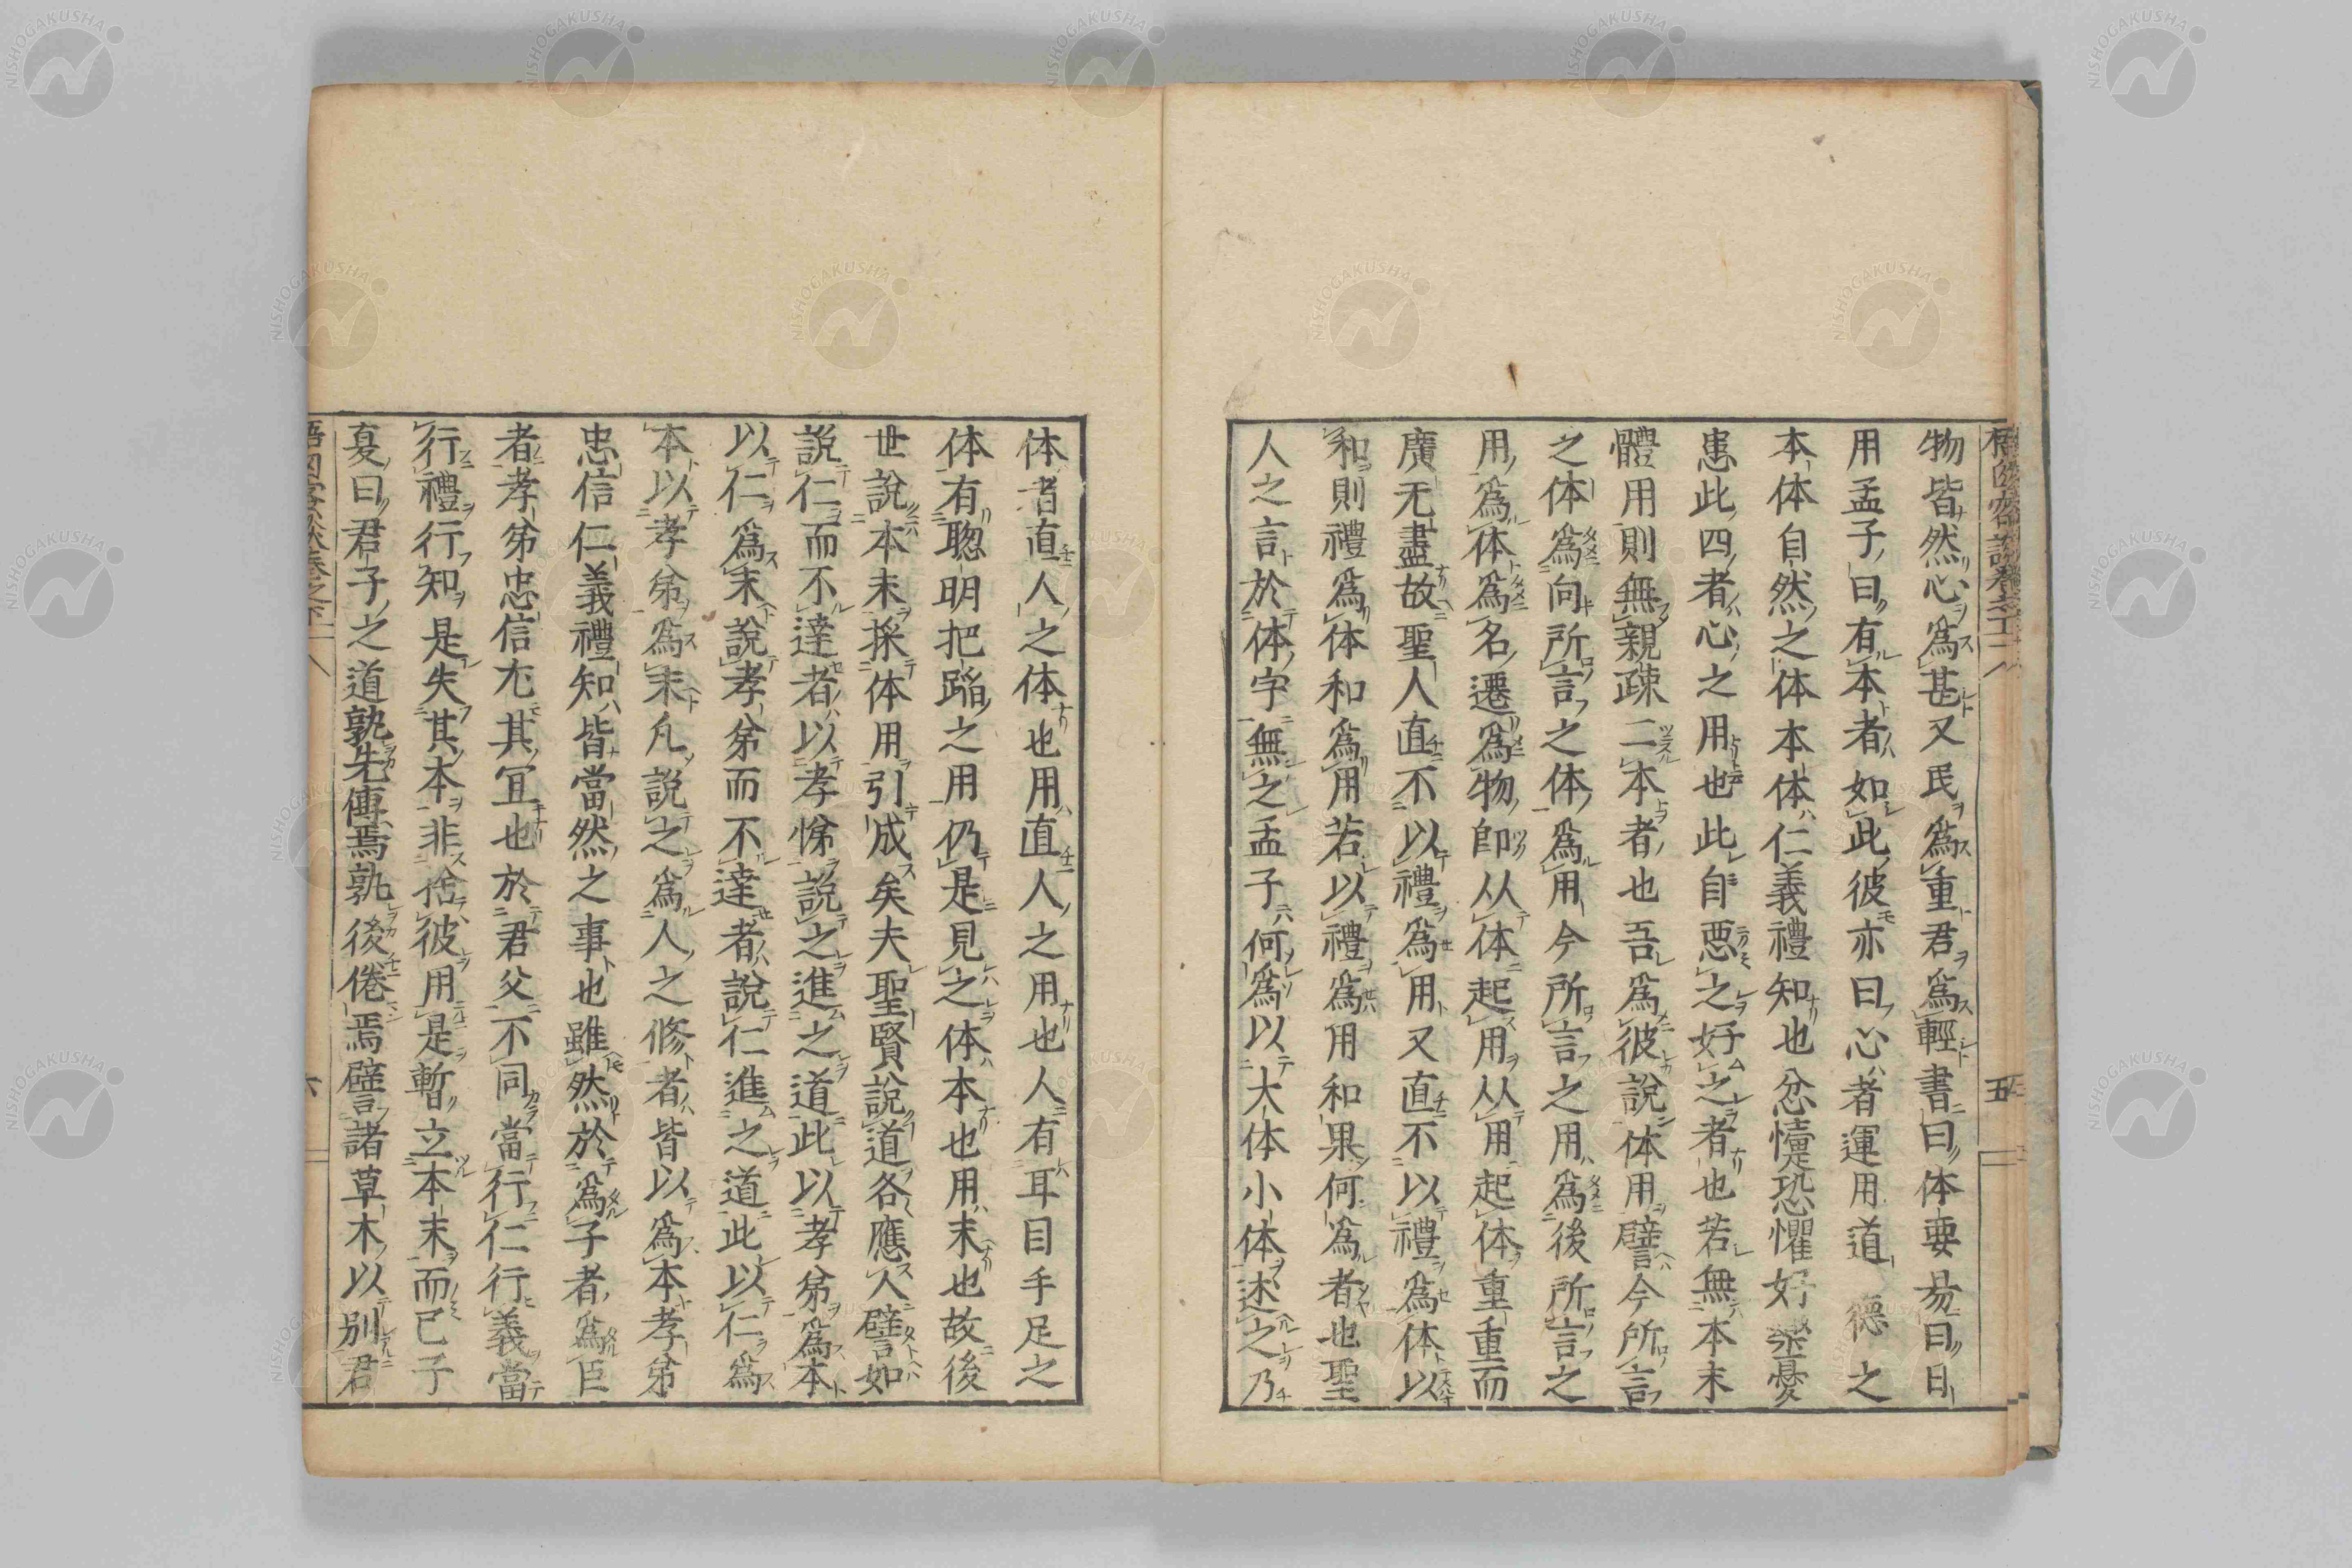 物皆然心爲甚又民爲重君爲輕書曰体要易曰日
用孟子曰有本者如此彼亦曰心者運用道德之
本体自然之体本体仁義禮知也忿懥恐懼好樂憂
患此四者心之用也此自惡之好之者也若無本末
體用則無親疎二本者也吾爲彼說体用譬今所言
之体爲向所言之体爲用今所言之用爲後所言之
用爲体爲名遷爲物卽从体起用从用起体重重而
廣无盡故聖人直不以禮爲用又直不以禮爲体以
和則禮爲体和爲用若以禮爲用和果何爲者也聖
人之言於体字無之孟子何爲以大体小体述之乃
五
体者直人之体也用直人之用也人有耳目手足之
体有聰明把蹈之用仍是見之体本也用末也故後
世說本末採体用引成矣夫聖賢說道各應人譬如
說仁而不達者以孝悌說之進之道此以孝弟爲本
以仁爲末說孝弟而不達者說仁進之道此以仁爲
本以孝弟爲末凡說之爲人之修者皆以爲本孝弟
忠信仁義禮知皆當然之事也雖然於爲子者爲臣
者孝弟忠信尤其冝也於君父不同當行仁行義當
行禮行知是失其本非捨彼用是暫立本末而已子
夏曰君子之道孰先傳焉孰後倦焉譬諸草木以別君
六
NISHOGAKUSHA